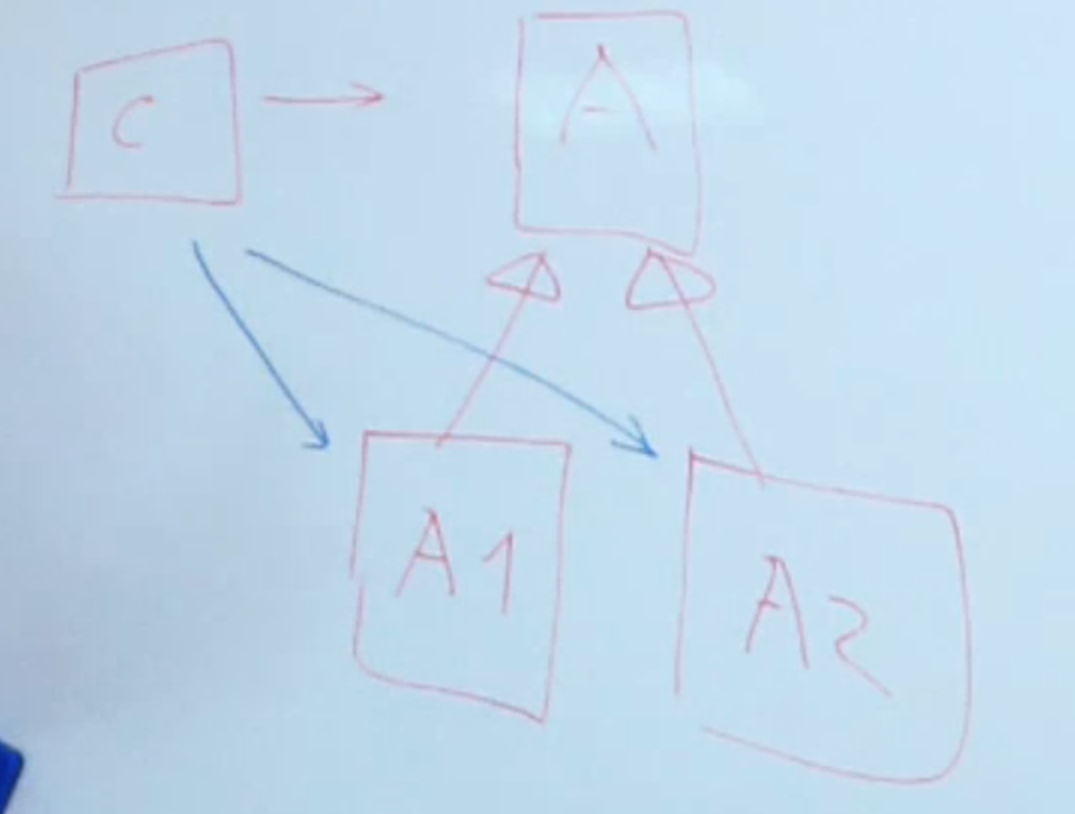 C
A
A1
A2